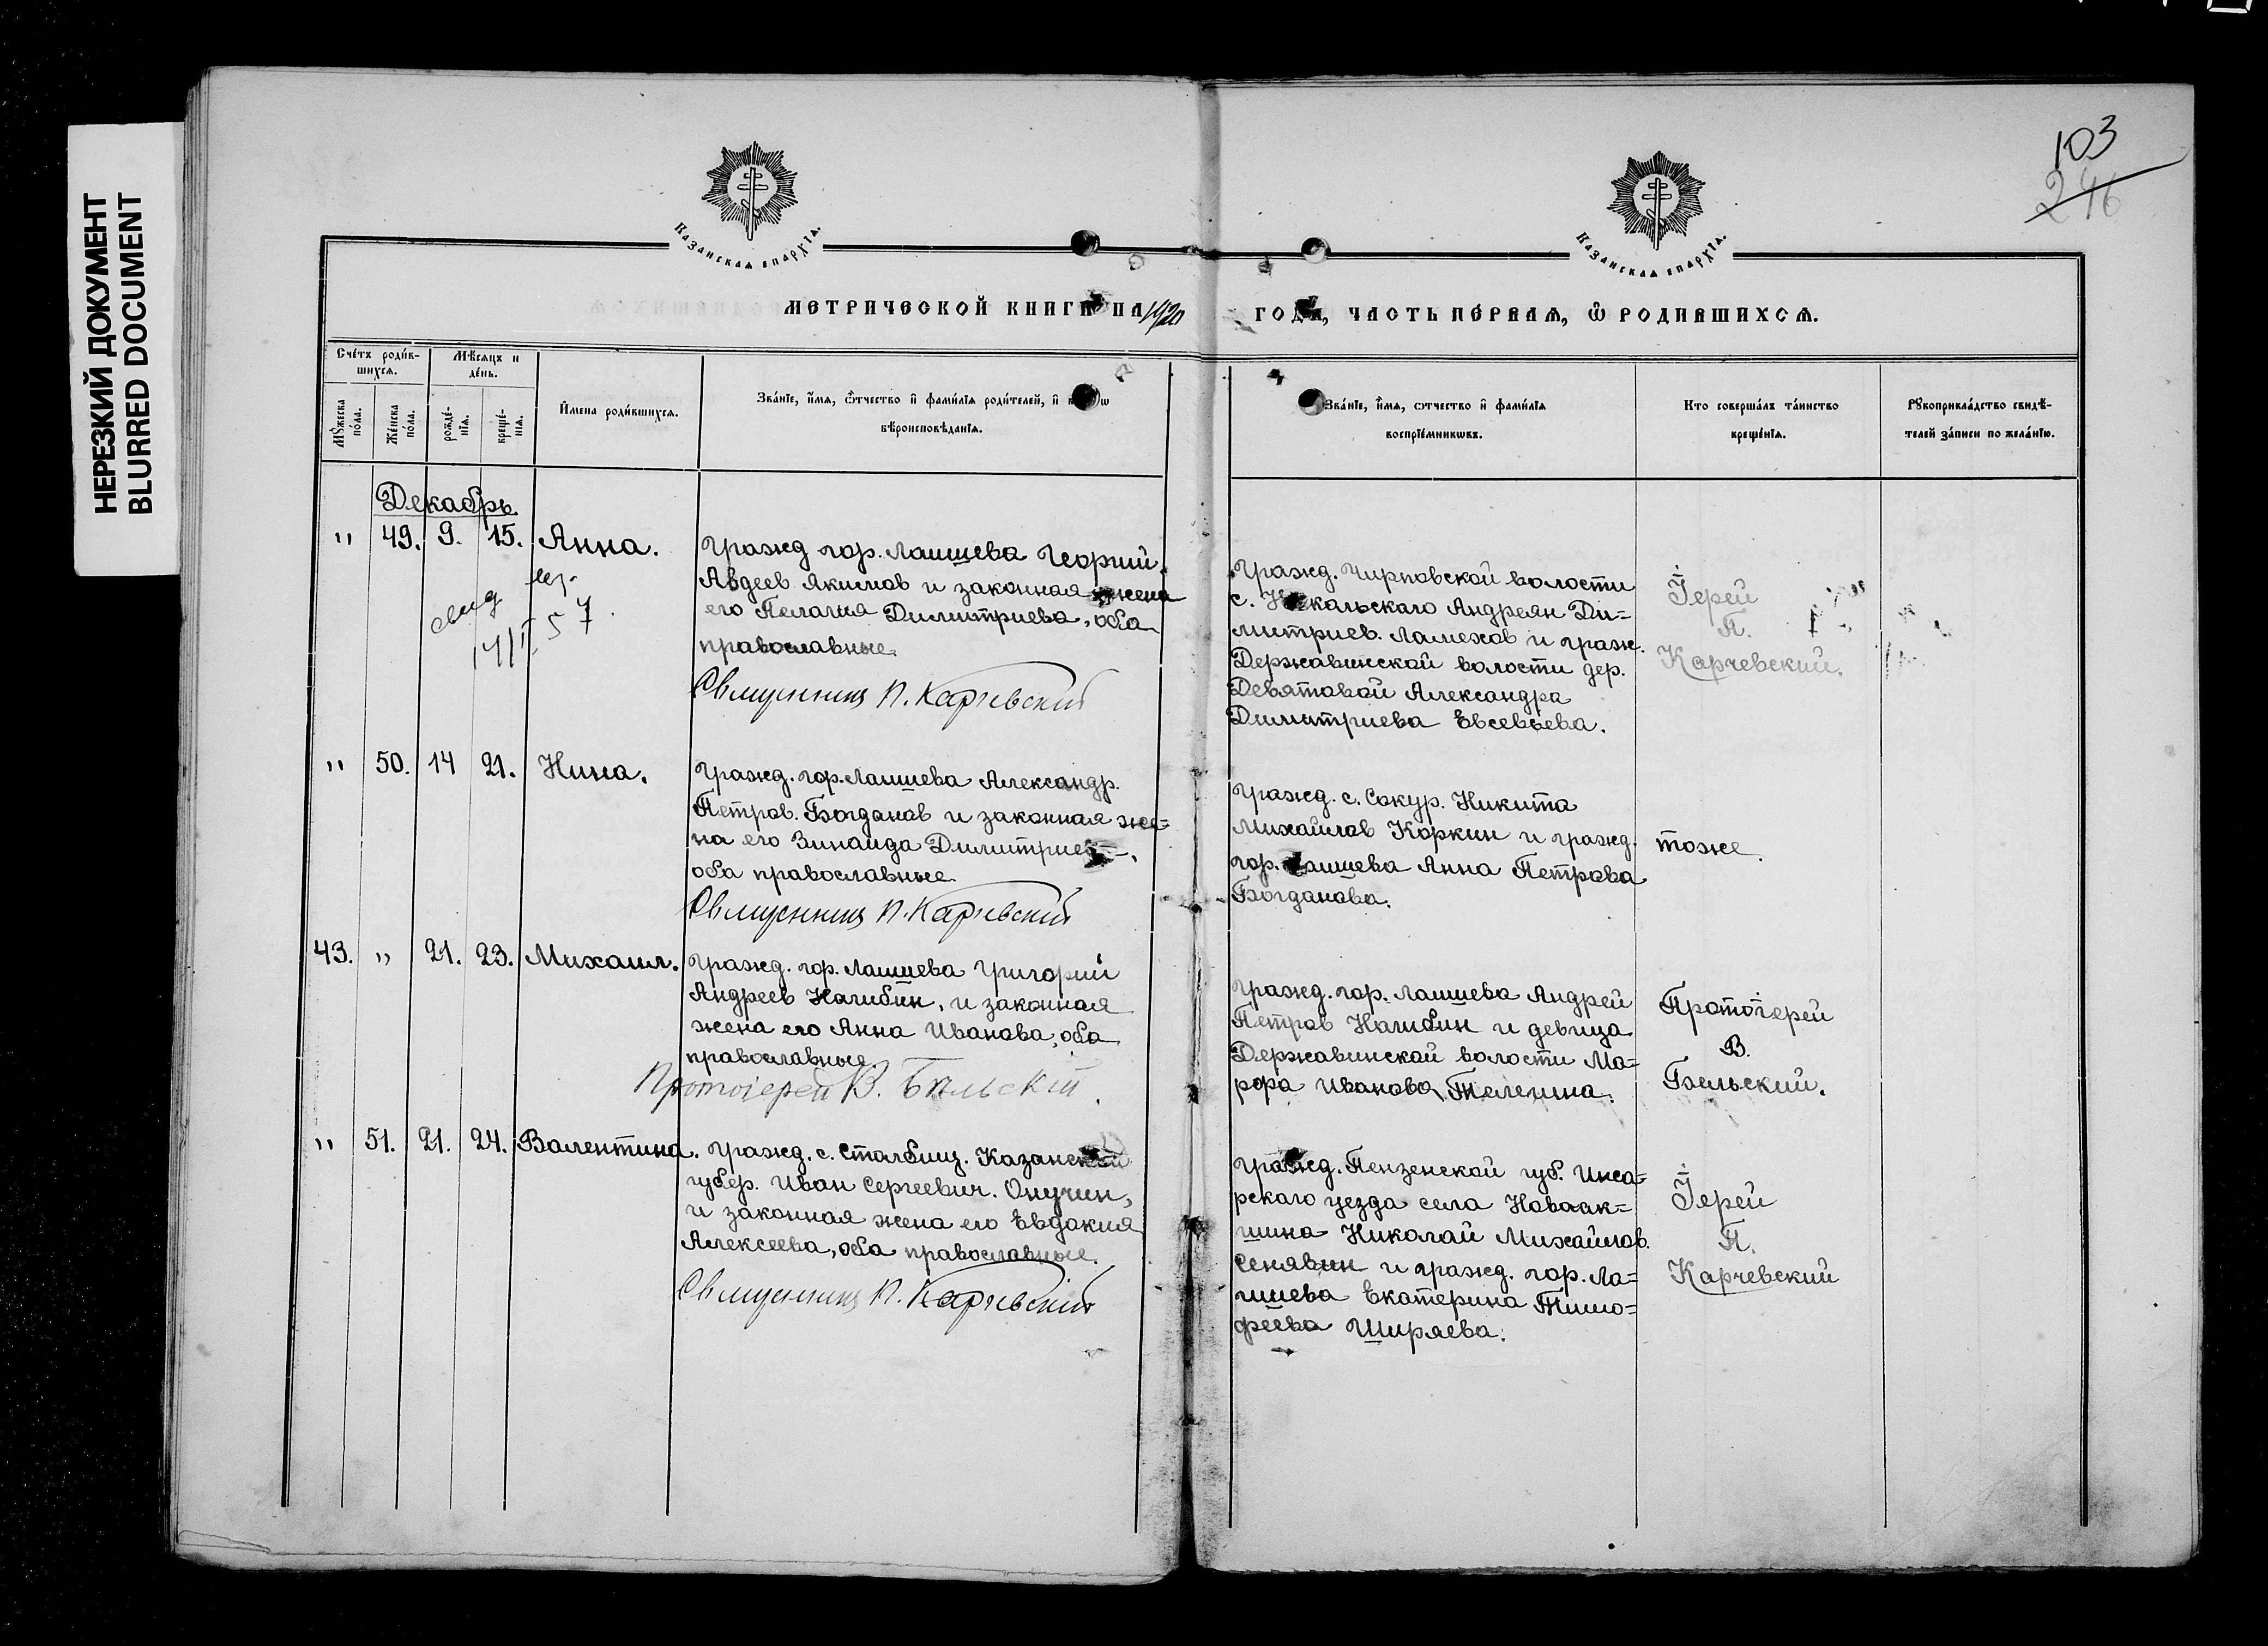 НЕРЕЗКИЙ ДОКУМЕНТ
BLURRED DOCUMENT
103
246
Казанская епархїа.
Казанская епархїа.
МЕТРИЧЕСКОЙ КНИГИ НА 1920
ГОДЪ, ЧАСТЬ ПЕРВАЯ, Ѡ РОДИВШИХСЯ.
Счетъ родив-
шихся.
Мѣсяцъ и
день.
Мужеска
пола.
Женска
пола.
рожде-
нїя.
креще-
нїя.
Имена родившихся.
Званїе, имя, отчество и фамилїя родителей, и
вѣроисповѣданїя.
Званїе, имя, отчество и фамилїя
воспрїемниковъ.
Кто совершалъ таинство
крещенїя.
Рукоприкладство свидѣ-
телей записи по желанїю.
Декабрь
" 49. 9. 15. Анна.
Гражд гор. Лаишева Георгий
Авдеев Якимов и законная жена
его Пелагия Димитриева, оба
православные.
Священник П. Карчевский
Гражд. Чирповской волости
с. Андреян Ди=
митриев. Ламехов и граж.
Державинской волости дер.
Девятовой Александра
Димитриева Евсевьева.
Іерей
П.
Карчевский.
" 50. 14 21. Нина.
Гражд. гор. Лаишева Александр.
Петров. Богданов и законная же=
на его Зинаида
оба православные
Священник П. Карчевский
Гражд. с. Сокур. Никита
Михайлов Коркин и гражд.
гор. Лаишева Анна Петрова
Богданова.
тоже.
43. " 21. 23. Михаил.
Гражд. гор. Лаишева Григорий
Андреев Нагибин, и законная
жена его Анна Иванова, оба
православные
Протоіерей В. Бѣльскій.
Гражд. гор. Лаишева Андрей
Петров Нагибин и девица
Державинской волости Ма=
рфа Иванова Телегина.
Протоіерей
В.
Бельский.
" 51. 21. 24. Валентина.
Гражд. с. Столбищ. Казанской
губер. Иван Сергеевич. Онучин,
и законная жена его Евдокия
Алексеева, оба православные.
Священник П. Карчевский
Гражд. Пензенской губ. Инса=
рского уезда села Новоак=
шина Николай Михайлов.
Сенявин и гражд. гор. Ла=
ишева Екатерина Тимо=
феева Ширяева.
Іерей
П.
Карчевский